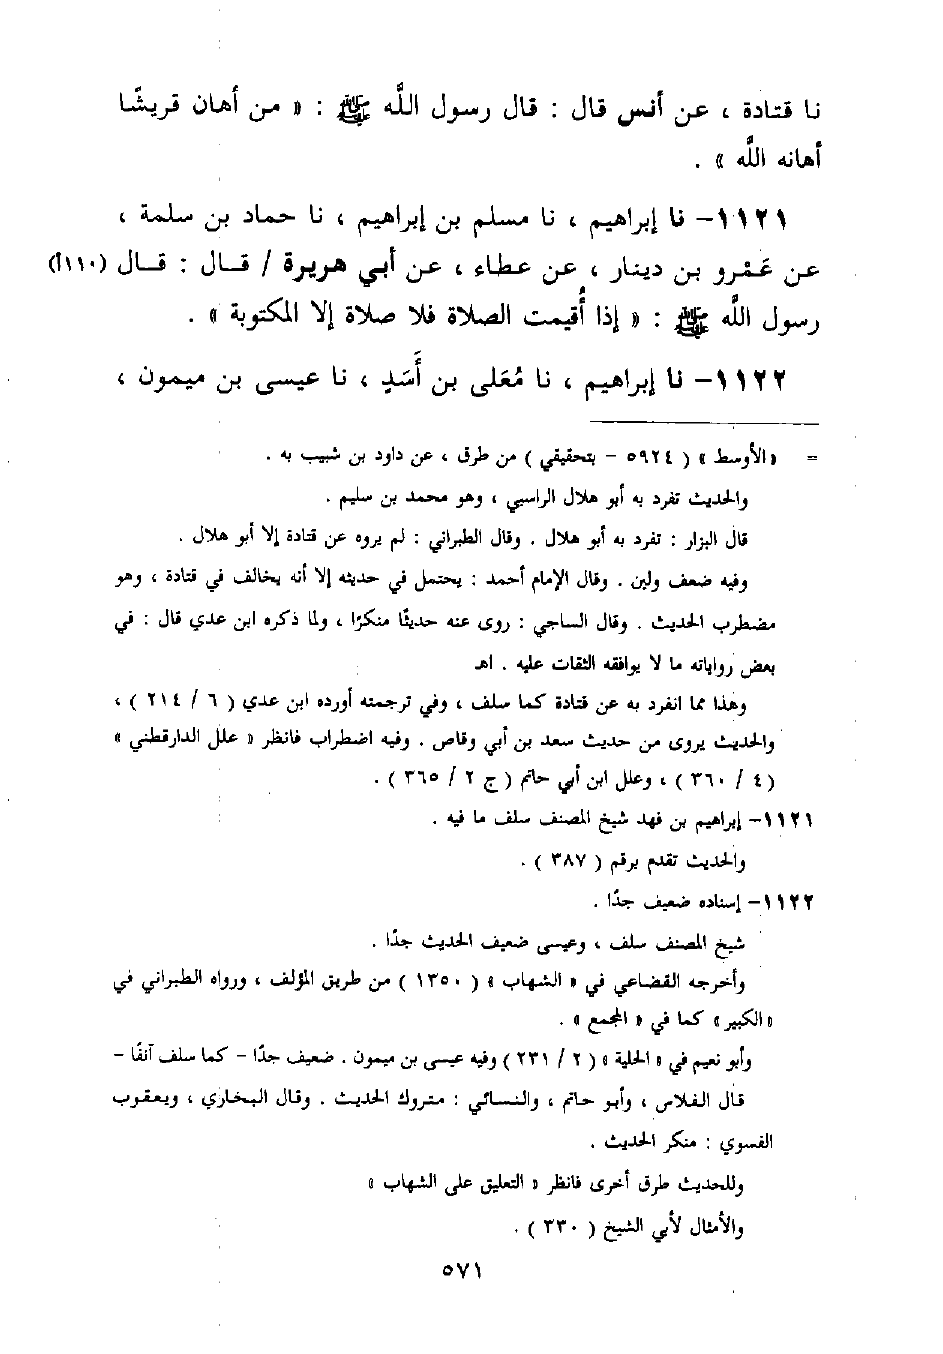 نا قتادة ، عن أنس قال : قال رسول اللَّه ﷺ : « من أهان قريشًا
أهانه اللَّه » .
١١٢١- نا إبراهيم ، نا مسلم بن إبراهيم ، نا حماد بن سلمة ،
عن عَمْرو بن دينار ، عن عطاء ، عن أبي هريرة / قال : قال (١١٠أ)
رسول اللَّه ﷺ : « إذا أُقيمت الصلاة فلا صلاة إلا المكتوبة » .
١١٢٢- نا إبراهيم ، نا مُعَلى بن أَسَدٍ ، نا عيسى بن ميمون ،
= « الأوسط » ( ٥٩٢٤ - بتحقيقي ) من طرق ، عن داود بن شبيب به .
والحديث تفرد به أبو هلال الراسبي ، وهو محمد بن سليم .
قال البزار : تفرد به أبو هلال . وقال الطبراني : لم يروه عن قتادة إلا أبو هلال .
وفيه ضعف ولين . وقال الإمام أحمد : يحتمل في حديثه إلا أنه يخالف في قتادة ، وهو
مضطرب الحديث . وقال الساجي : روى عنه حديثًا منكرًا ، ولما ذكره ابن عدي قال : في
بعض رواياته ما لا يوافقه الثقات عليه . اهـ
وهذا مما انفرد به عن قتادة كما سلف ، وفي ترجمته أورده ابن عدي ( ٦ / ٢١٤ ) ،
والحديث يروى من حديث سعد بن أبي وقاص . وفيه اضطراب فانظر « علل الدارقطني »
( ٤ / ٣٦٠ ) ، وعلل ابن أبي حاتم ( ج ٢ / ٣٦٥ ) .
١١٢١- إبراهيم بن فهد شيخ المصنف سلف ما فيه .
والحديث تقدم برقم ( ٣٨٧ ) .
١١٢٢- إسناده ضعيف جدًا .
شيخ المصنف سلف ، وعيسى ضعيف الحديث جدًا .
وأخرجه القضاعي في « الشهاب » ( ١٣٥٠ ) من طريق المؤلف ، ورواه الطبراني في
« الكبير » كما في « المجمع » .
وأبو نعيم في « الحلية » ( ٢ / ٢٣١ ) وفيه عيسى بن ميمون . ضعيف جدًا - كما سلف آنفًا -
قال الفلاس ، وأبو حاتم ، والنسائي : متروك الحديث . وقال البخاري ، ويعقوب
الفسوي : منكر الحديث .
وللحديث طرق أخرى فانظر « التعليق على الشهاب »
والأمثال لأبي الشيخ ( ٣٣٠ ) .
٥٧١